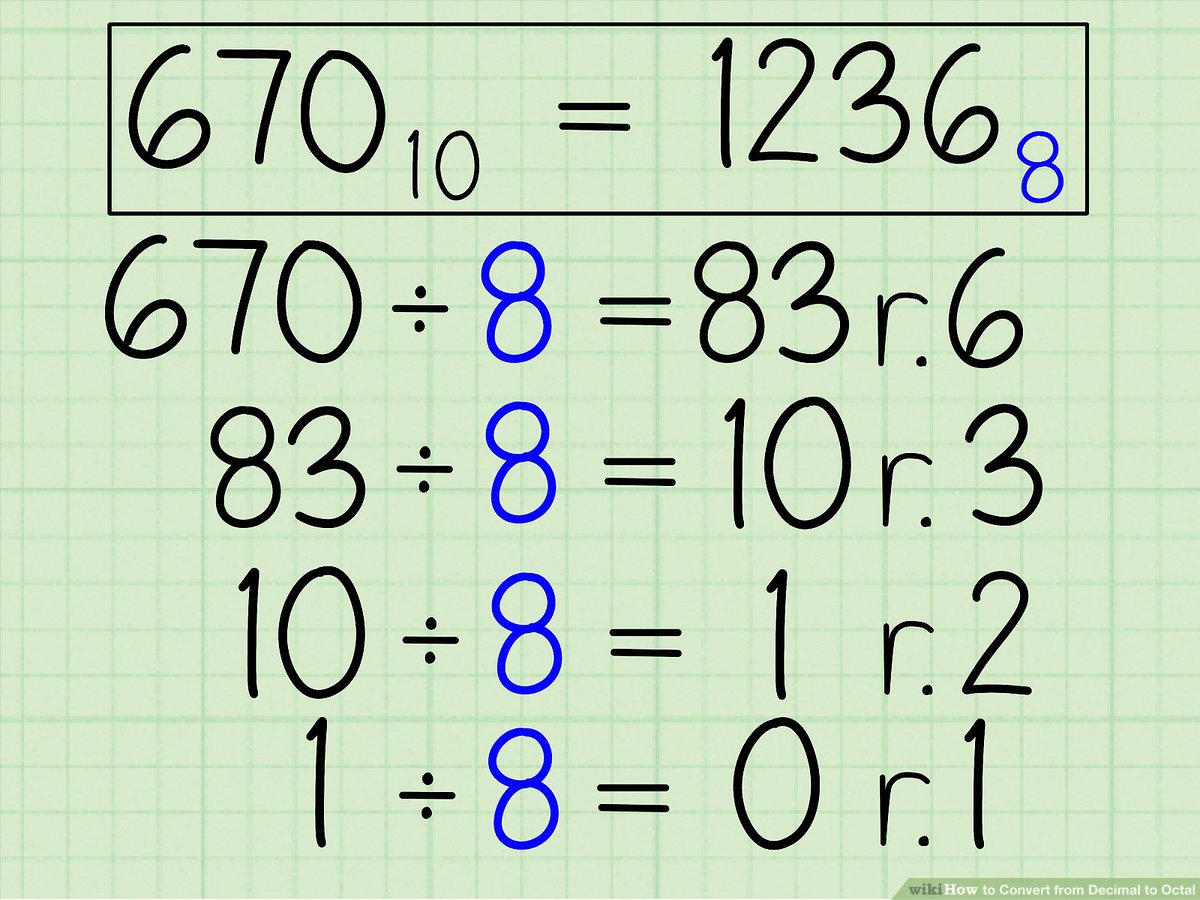 670₁₀ = 1236₈
670 ÷ 8 = 83 r. 6
83 ÷ 8 = 10 r. 3
10 ÷ 8 = 1 r. 2
1 ÷ 8 = 0 r. 1
wikiHow to Convert from Decimal to Octal